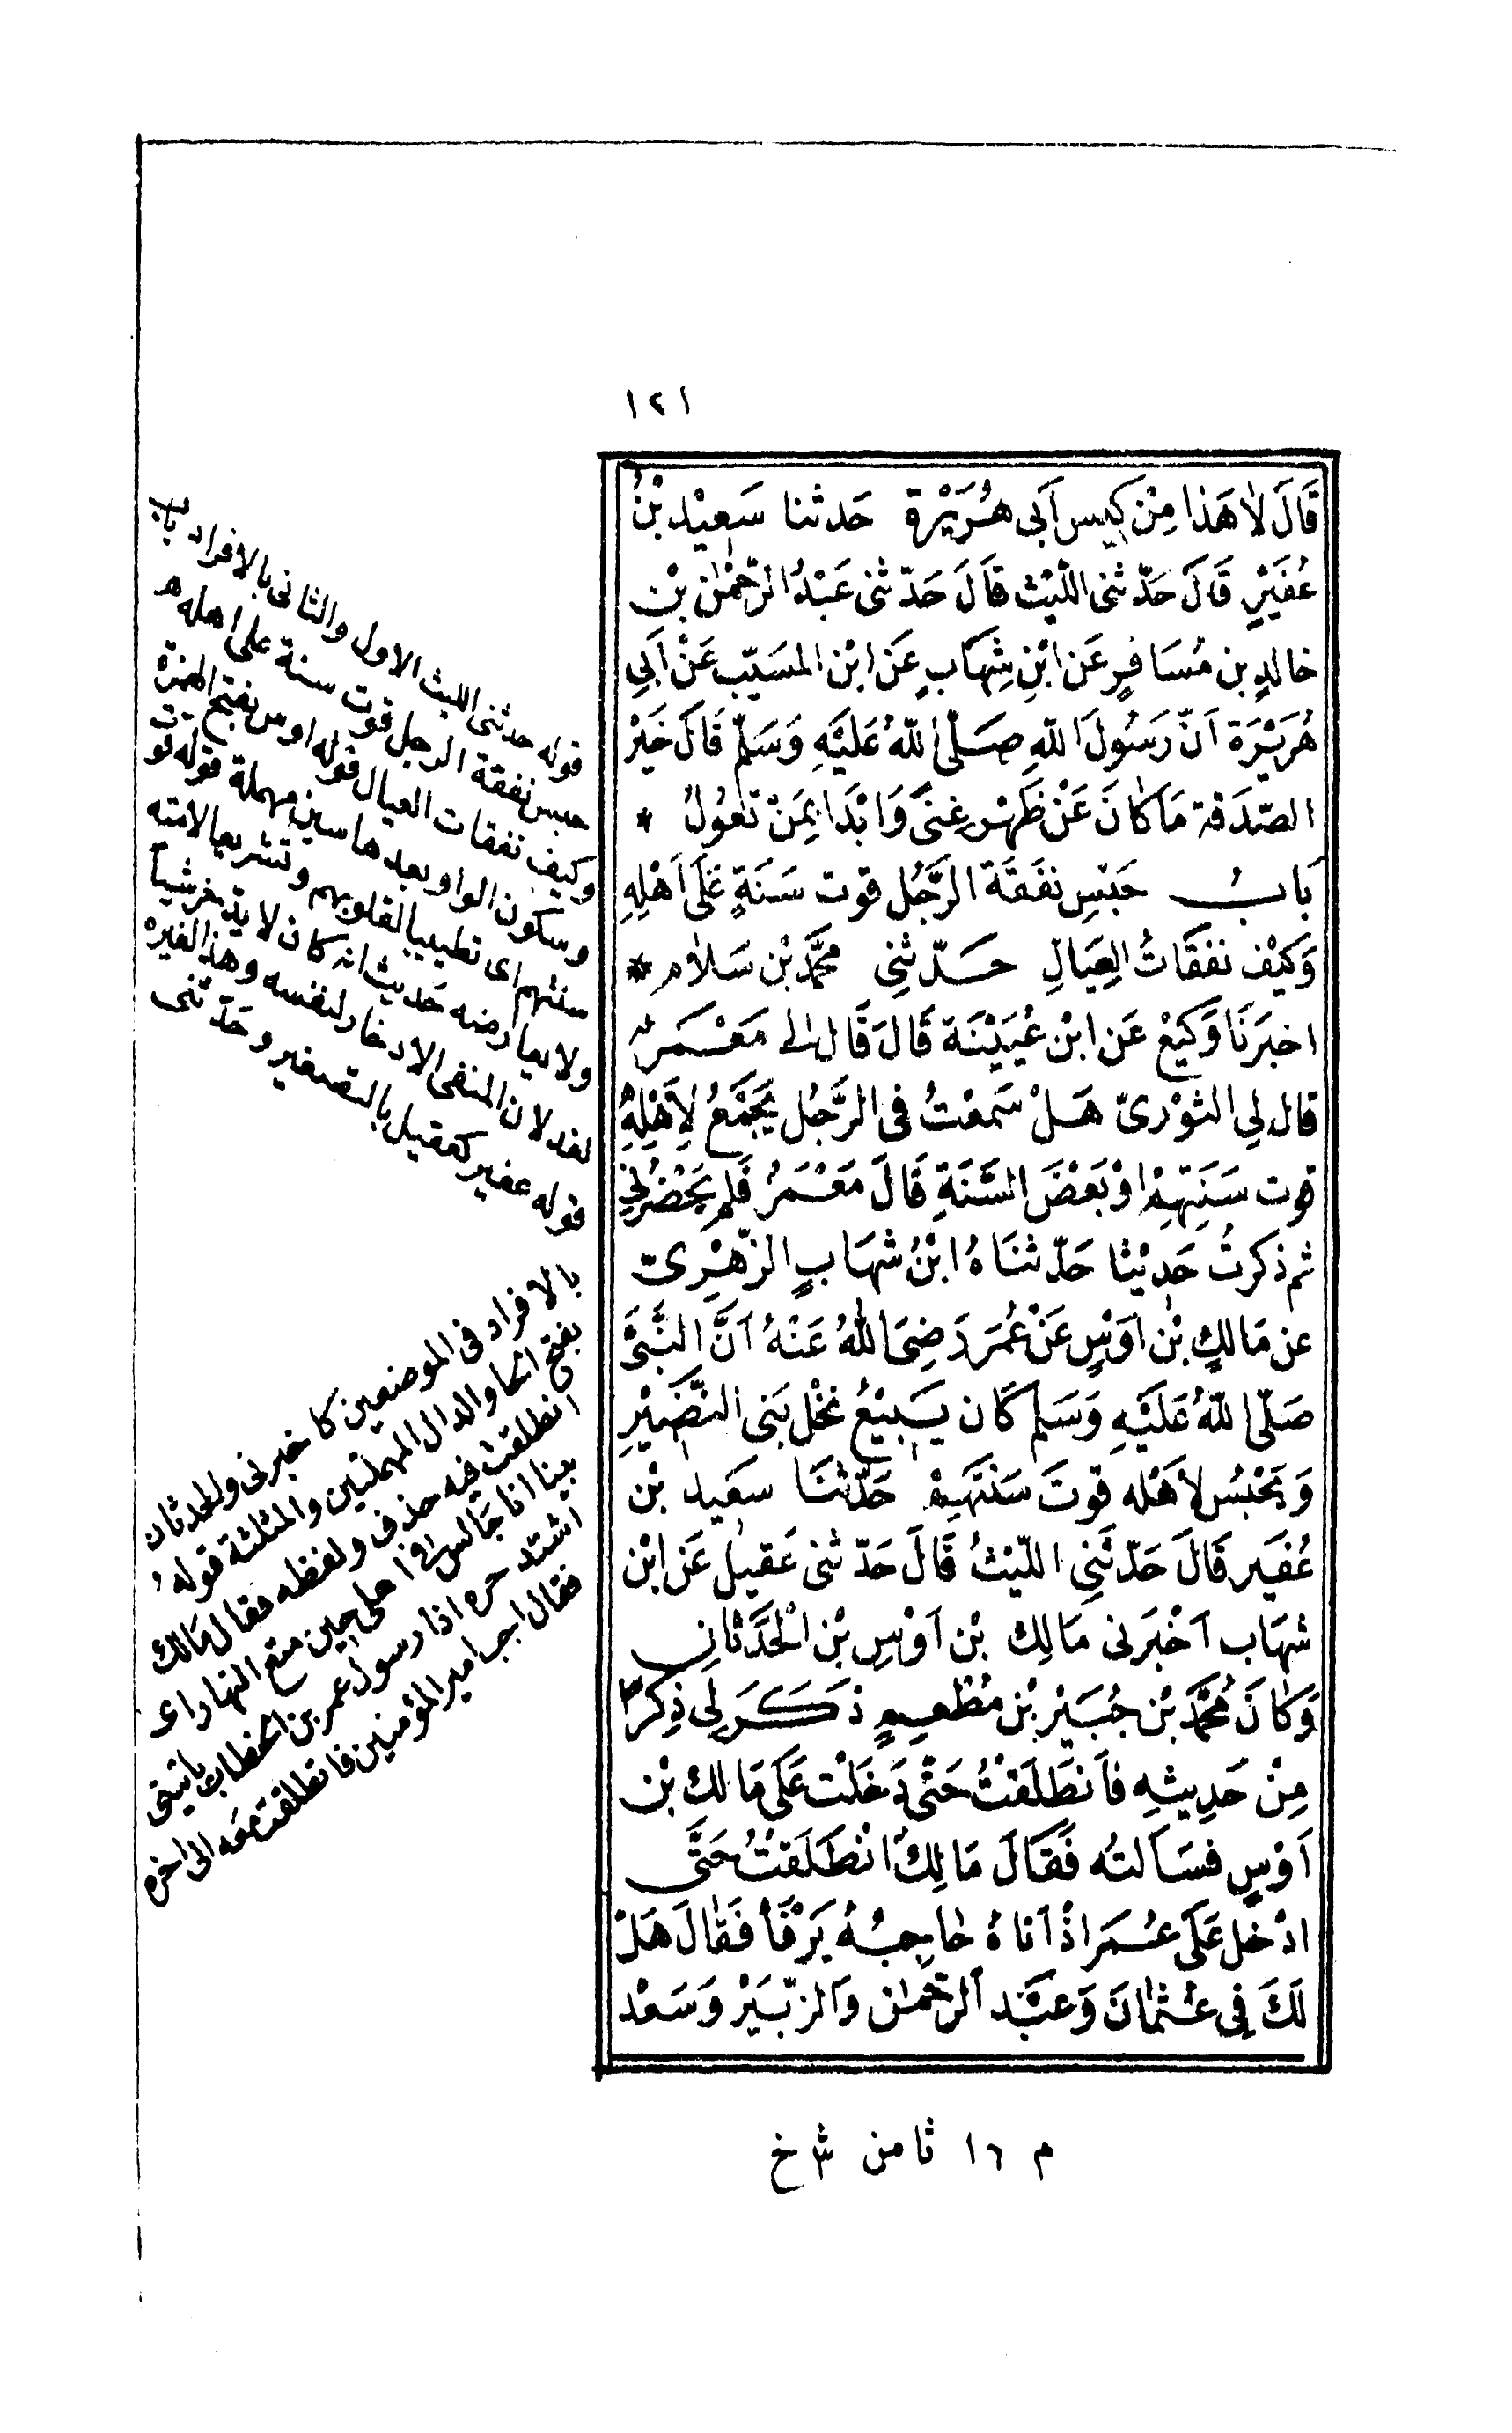 ١٢١
قَالَ لا هَذا مِنْ كِيسِ أَبِى هُرَيْرَة حَدثنا سَعِيْد بْنُ
عُفَيْرٍ قَالَ حَدّثنى اللّيْث قَالَ حَدّثنى عَبْدُ الرّحْمٰن بْن
خالدِ بن مُسَافِرٍ عَن ابْنِ شِهَابٍ عَن ابْن المسَيّب عَنْ أَبِى
هُرَيْرَة اَنّ رَسُولَ اللهِ صَلّى اللهُ عَلَيْهِ وَسَلّم قَالَ خَيْرُ
الصّدَقة مَا كَانَ عَنْ ظَهْرِ غِنىً وَابْدَا بِمَنْ تَعُولُ *
بَابُ حَبْسِ نفَقَة الرَّجُل قوت سَنَةٍ عَلَى اَهْلِهِ
وَكَيْف نفقَاتُ العِيَالِ حَدّثنِى محمَّدُ بْن سَلاَم *
اخبَرَنَا وَكيْع عَن ابْن عُيَيْنَة قَالَ قَال لى مَعْمَرٌ
قال لِى الثوْرىّ هَلْ سَمعْتُ فى الرَّجُل يَجْمَعُ لِأَهْلِهِ
قوت سَنَتِهِمْ اوْ بَعْضَ السَّنَةِ قَالَ مَعْمَرُ فَلم يَحْضُرْنِى
ثم ذكرتُ حَدِيْثا حَدّثنَاهُ ابْنُ شهَابٍ الزّهْرِىّ
عن مَالكِ بْن اَوَسٍ عَنْ عُمَرَ رَضِىَ اللهُ عَنْهُ اَنَّ النَّبىَّ
صَلّى اللهُ عَلَيْهِ وَسَلم كَان يَبِيْعُ نخْل بَنى النَّضِيْرِ
وَيَحْبِسُ لأهْله قوتَ سَنَتِهِمْ حَدّثنَا سعَيد بْن
عُفَير قَالَ حَدّثَنِى الليْثُ قَالَ حَدّثنى عَقيل عَن ابْن
شهَاب أخْبَرَنى مَالِك بْن اَوْسِ بْن الْحَدَثانِ
وَكَانَ مُحَمَّد بْن جُبَيْر بْن مُطْعِمٍ ذَكَرَ لِى ذِكرًا
مِنْ حَدِيثِهِ فاَنطَلَقْتُ حَتّى دَخَلْت عَلَى مَالك بْن
اَوْسٍ فسَاَلتُه فَقَالَ مَالِكٌ انْطَلَقْتُ حَتَّى
ادْخُل عَلَى عُمَرَ اذْ اَتاهُ حاجِبُهُ يَرْفَأ فَقَالَ هَلْ
لَكَ فِى عُثمانَ وَعَبْد الرّحْمٰن وَالزّبَيْر وَسَعْد
قوله حدثنى الليث الاول والثانى بالافراد باب
حبس نفقة الرجل قوت سنة على اهله
وكيف نفقات العيال قوله اوس بفتح الهمزة
وسكون الواو بعدها سين مهملة قوله قوت
سنتهم اى تطييبا لقلوبهم وتشريعا لامته
ولا يعارضه حديث انه كان لا يدخر شيأ
لغد لان المنفى الادخار لنفسه وهذا لغيره
قوله عفير كعقيل بالتصغير وحدّثنى
بالافراد فى الموضعين كاخبرنى والحدثان
بفتح الحا والدال المهملتين والمثلثة قوله
انطلقت فيه حذف ولفظه فقال مالك
بينا انا جالس فى اهلى حين متع النهار اى
اشتد حره اذا رسول عمر بن الخطاب ياتينى
فقال اجب امير المؤمنين فانطلقت معه الى اخره
م ١٦ ثامن ش خ